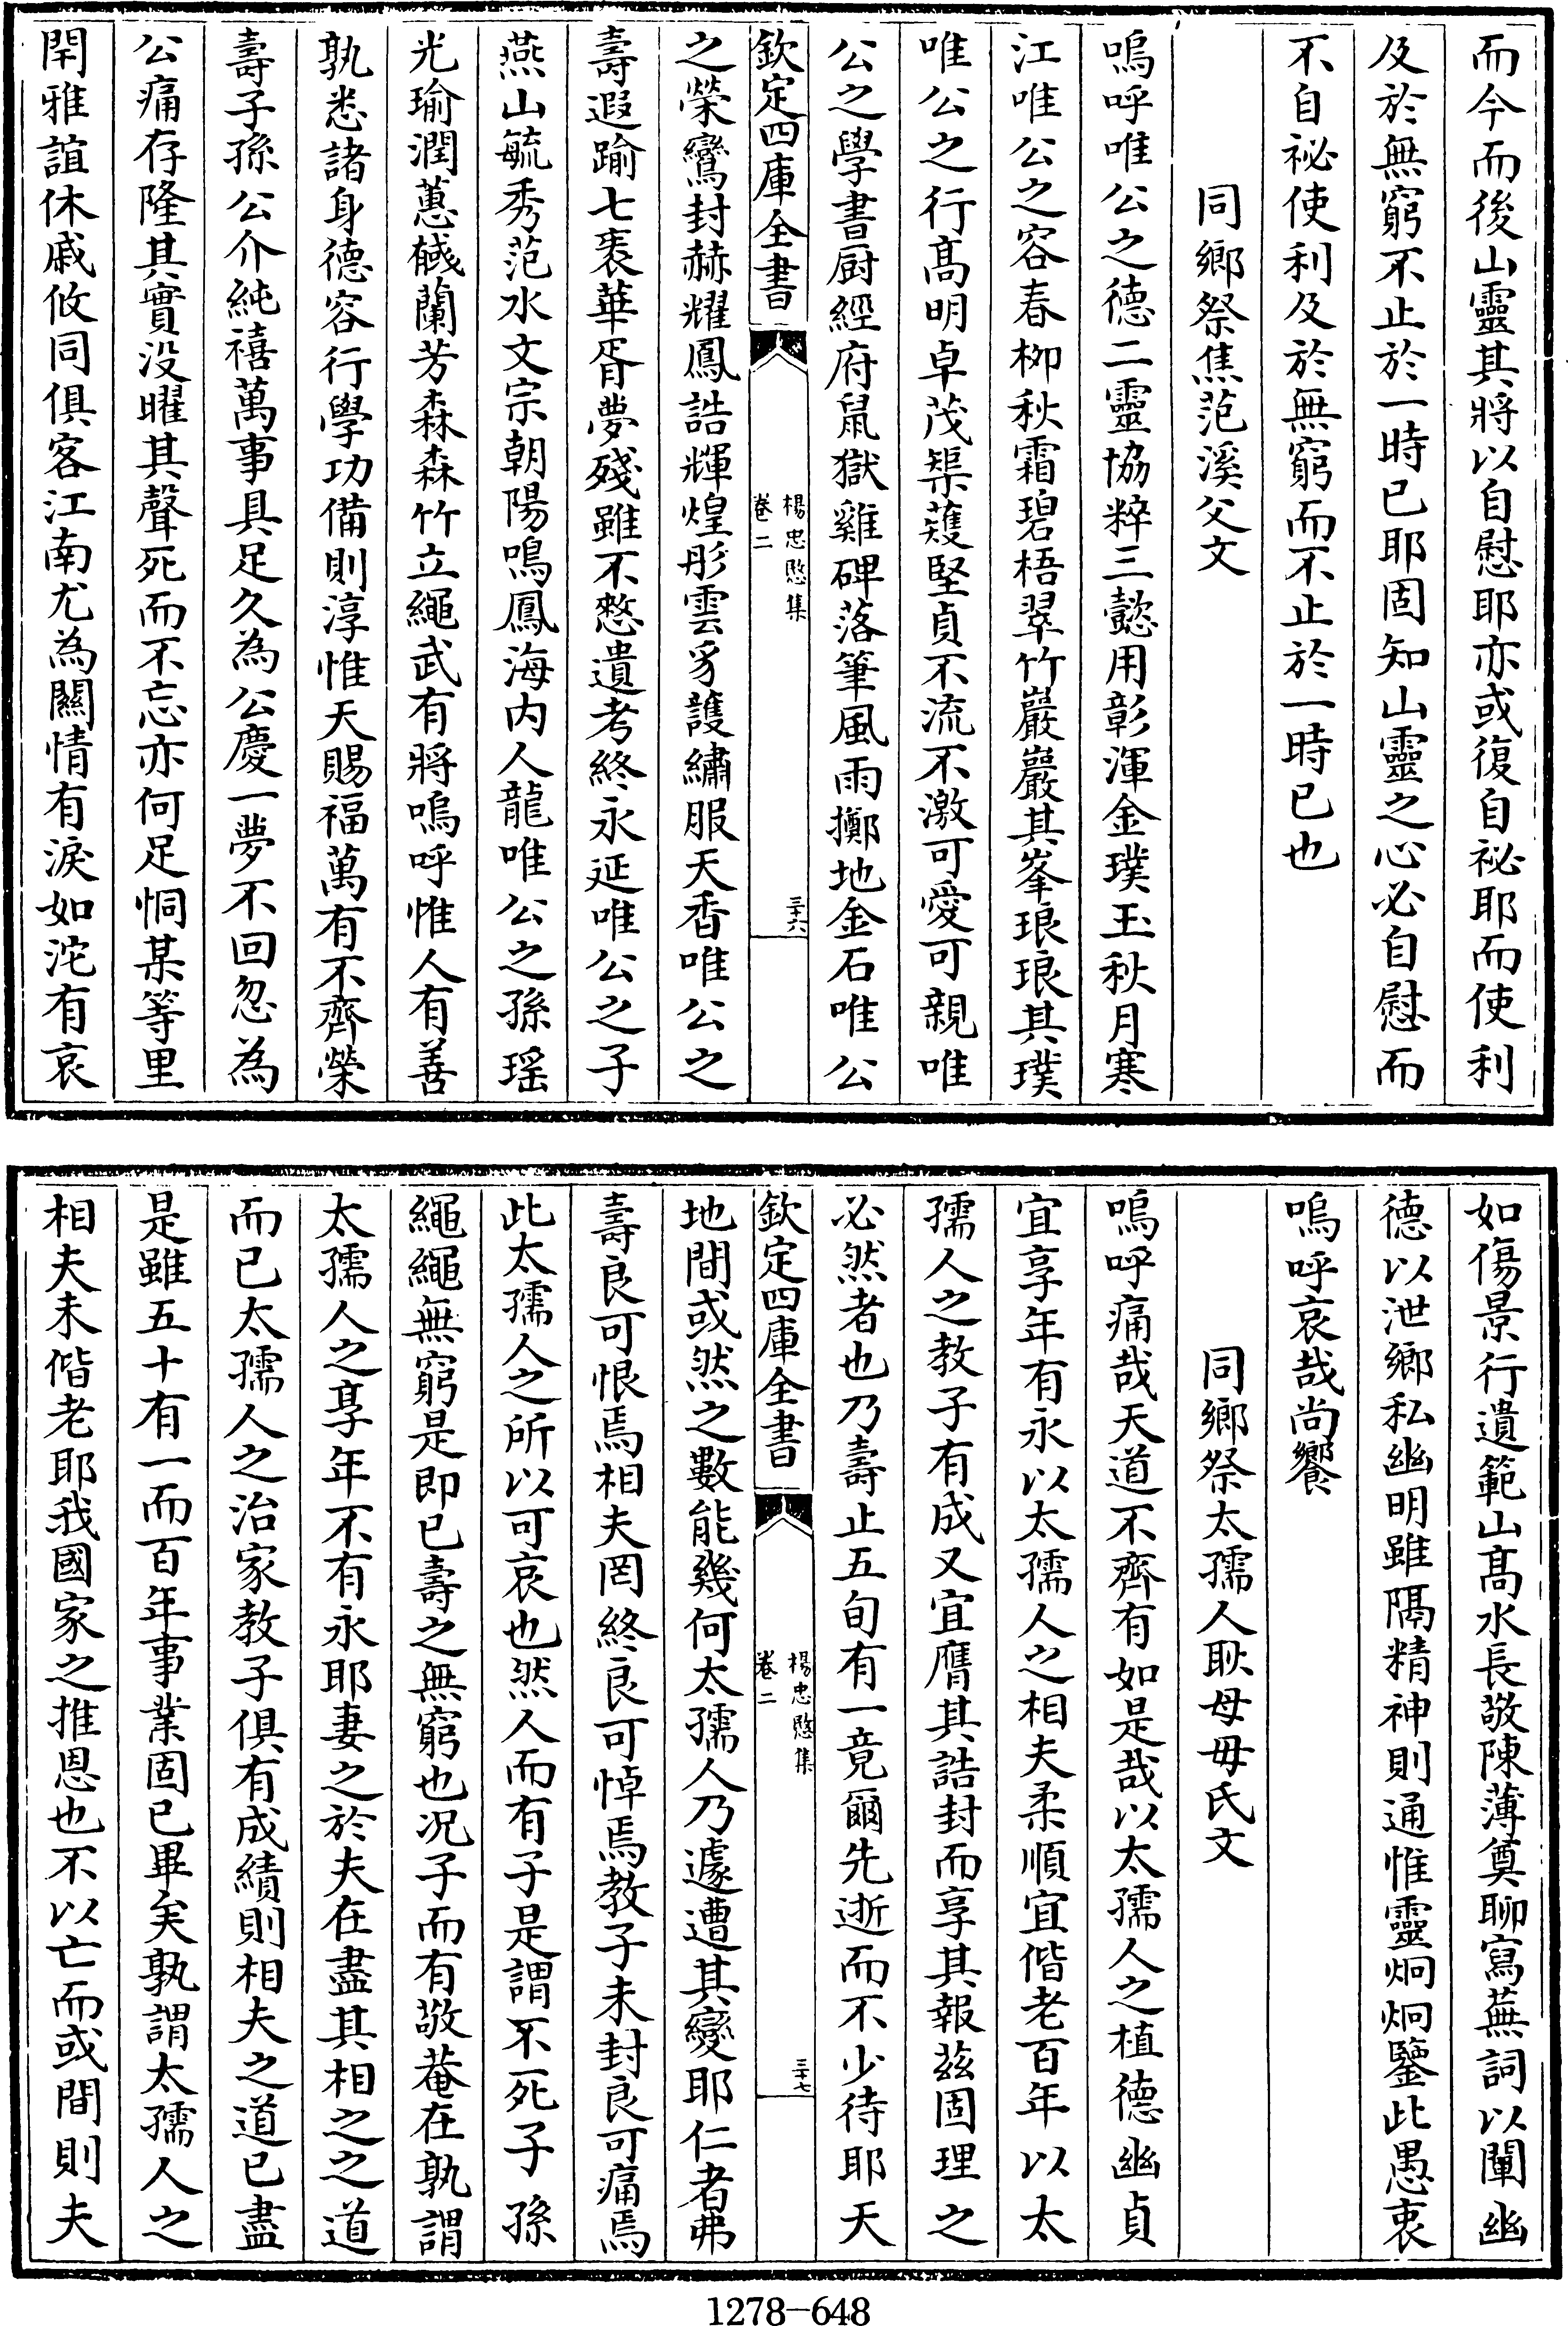 而今而後山靈其將以自慰耶亦或復自祕耶而使利
及於無窮不止於一時已耶固知山靈之心必自慰而
不自祕使利及於無窮而不止於一時已也
同鄉祭焦范溪父文
嗚呼唯公之德二靈協粹三懿用彰渾金璞玉秋月寒
江唯公之容春栁秋霜碧梧翠竹巖巖其峯琅琅其璞
唯公之行髙明卓茂榘蒦堅貞不流不激可愛可親唯
公之學書厨經府鼠獄雞碑落筆風雨擲地金石唯公
欽定四庫全書
楊忠愍集
卷二
三十六
之榮鸞封赫耀鳳誥輝煌彤雲豸護繡服天香唯公之
壽遐踰七袠華胥夢殘雖不憗遺考終永延唯公之子
燕山毓秀范水文宗朝陽鳴鳳海内人龍唯公之孫瑶
光瑜潤蕙醎蘭芳森森竹立繩武有將嗚呼惟人有善
孰悉諸身德容行學功備則淳惟天賜福萬有不齊榮
壽子孫公介純禧萬事具足久為公慶一夢不回忽為
公痛存隆其實没曜其聲死而不忘亦何足恫某等里
閈雅誼休戚攸同俱客江南尤為關情有淚如沱有哀
如傷景行遺範山髙水長敬陳薄奠聊寫蕪詞以闡幽
德以泄鄉私幽明雖隔精神則通惟靈炯炯鑒此愚衷
嗚呼哀哉尚饗
同鄉祭太孺人耿母毋氏文
嗚呼痛哉天道不齊有如是哉以太孺人之植德幽貞
宜享年有永以太孺人之相夫柔順宜偕老百年以太
孺人之教子有成又宜膺其誥封而享其報兹固理之
必然者也乃壽止五旬有一竟爾先逝而不少待耶天
欽定四庫全書
楊忠愍集
卷二
三十七
地間或然之數能幾何太孺人乃遽遭其變耶仁者弗
壽良可恨焉相夫罔終良可悼焉教子未封良可痛焉
此太孺人之所以可哀也然人而有子是謂不死子孫
繩繩無窮是即已壽之無窮也况子而有敬菴在孰謂
太孺人之享年不有永耶妻之於夫在盡其相之之道
而已太孺人之治家教子俱有成績則相夫之道已盡
是雖五十有一而百年事業固已畢矣孰謂太孺人之
相夫未偕老耶我國家之推恩也不以亡而或間則夫
1278-648